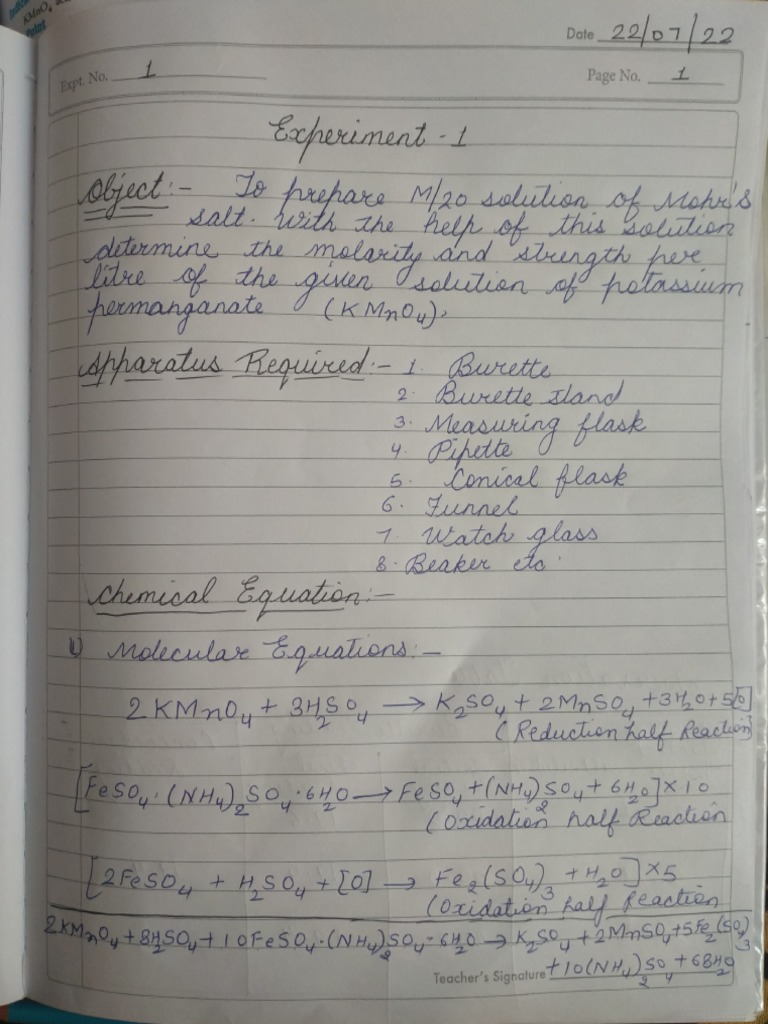 KMnO₄
Point
Date 22/07/22
Expt. No. 1
Page No. 1
Experiment - 1
Object:- To prepare M/20 solution of Mohr's
salt. With the help of this solution
determine the molarity and strength per
litre of the given solution of potassium
permanganate (KMnO₄).
Apparatus Required:- 1. Burette
2. Burette stand
3. Measuring flask
4. Pipette
5. Conical flask
6. Funnel
7. Watch glass
8. Beaker etc.
Chemical Equation:-
Molecular Equations:-
2KMnO₄ + 3H₂SO₄ → K₂SO₄ + 2MnSO₄ + 3H₂O + 5[O]
(Reduction half Reaction)
[FeSO₄·(NH₄)₂SO₄·6H₂O → FeSO₄ + (NH₄)₂SO₄ + 6H₂O] × 10
(Oxidation half Reaction
[2FeSO₄ + H₂SO₄ + [O] → Fe₂(SO₄)₃ + H₂O] × 5
(Oxidation half Reaction
2KMnO₄ + 8H₂SO₄ + 10FeSO₄·(NH₄)₂SO₄·6H₂O → K₂SO₄ + 2MnSO₄ + 5Fe₂(SO₄)₃
+ 10(NH₄)₂SO₄ + 68H₂O
Teacher's Signature